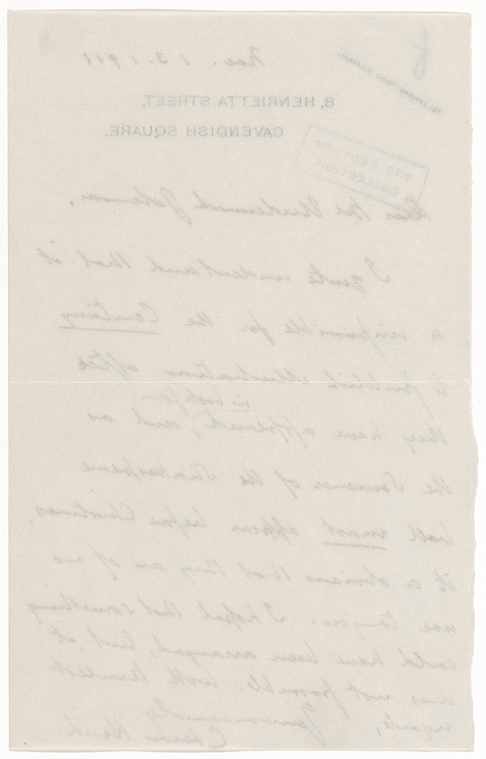 Nov. 13. 1911
8, HENRIETTA STREET,
CAVENDISH SQUARE.
THE CENTURY
COLLECTION
Dear Mr Underwood Johnson,
I quite understand that it
is impossible for the Century
to publish illustrations after
they have appeared in book form, and as
the Souvenir of the Shakespeare
ball must appear before Christmas,
it is obvious that they are of no
use to you. I hoped that something
could have been arranged, but it
was not possible. With kindest
regards,
Yours sincerely